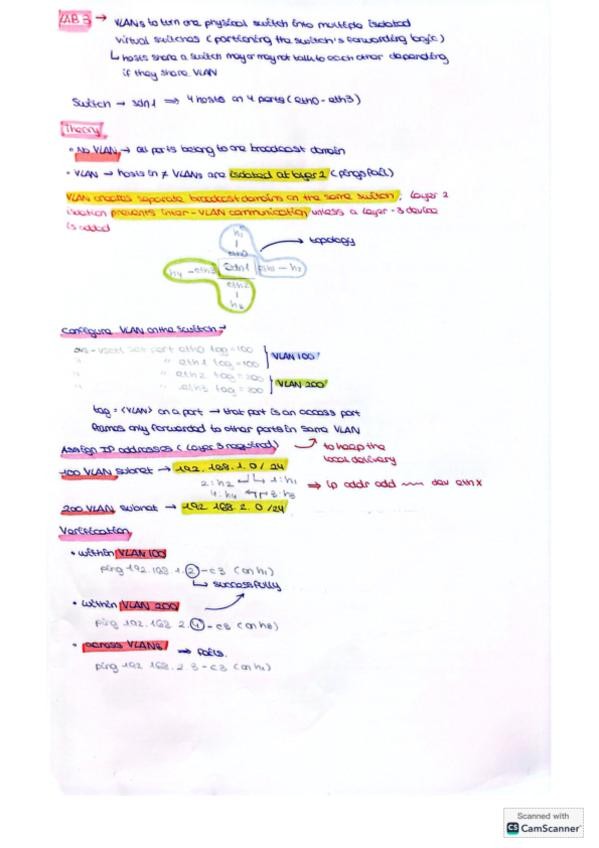 LAB 3 → VLANs to turn one physical switch into multiple isolated
virtual switches (partitioning the switch's forwarding logic)
↳ hosts share a switch may or may not talk to each other depending
if they share VLAN
Switch → sdn1 ⇒ 4 hosts on 4 ports (eth0 - eth3)
Theory
• No VLAN → all ports belong to one broadcast domain
• VLAN → hosts in ≠ VLANs are isolated at layer 2 (pings fail)
VLAN creates separate broadcast domains on the same switch; layer 2
isolation prevents inter-VLAN communication unless a layer-3 device
is added
h1
eth0
→ topology
h4 - eth3 sdn1 eth1 - h2
eth2
Configure VLAN on the switch →
ovs-vsctl set port eth0 tag=100
" " eth1 tag=100 } VLAN 100
" " eth2 tag=200
" " eth3 tag=200 } VLAN 200
tag = <VLAN> on a port → that port is an access port
frames only forwarded to other ports in same VLAN
Assign IP addresses (layer 3 required) → to keep the
local delivery
100 VLAN subnet → 192.168.1.0/24
2:h2 1:h1 ⇒ ip addr add dev ethX
4:h4 3:h3
200 VLAN subnet → 192.168.2.0/24
Verification
• within VLAN 100
ping 192.168.1.2 -c3 (on h1)
↳ successfully
• within VLAN 200
ping 192.168.2.4 -c3 (on h3)
• across VLANs ⇒ fails.
ping 192.168.2.3 -c3 (on h1)
Scanned with
CS CamScanner